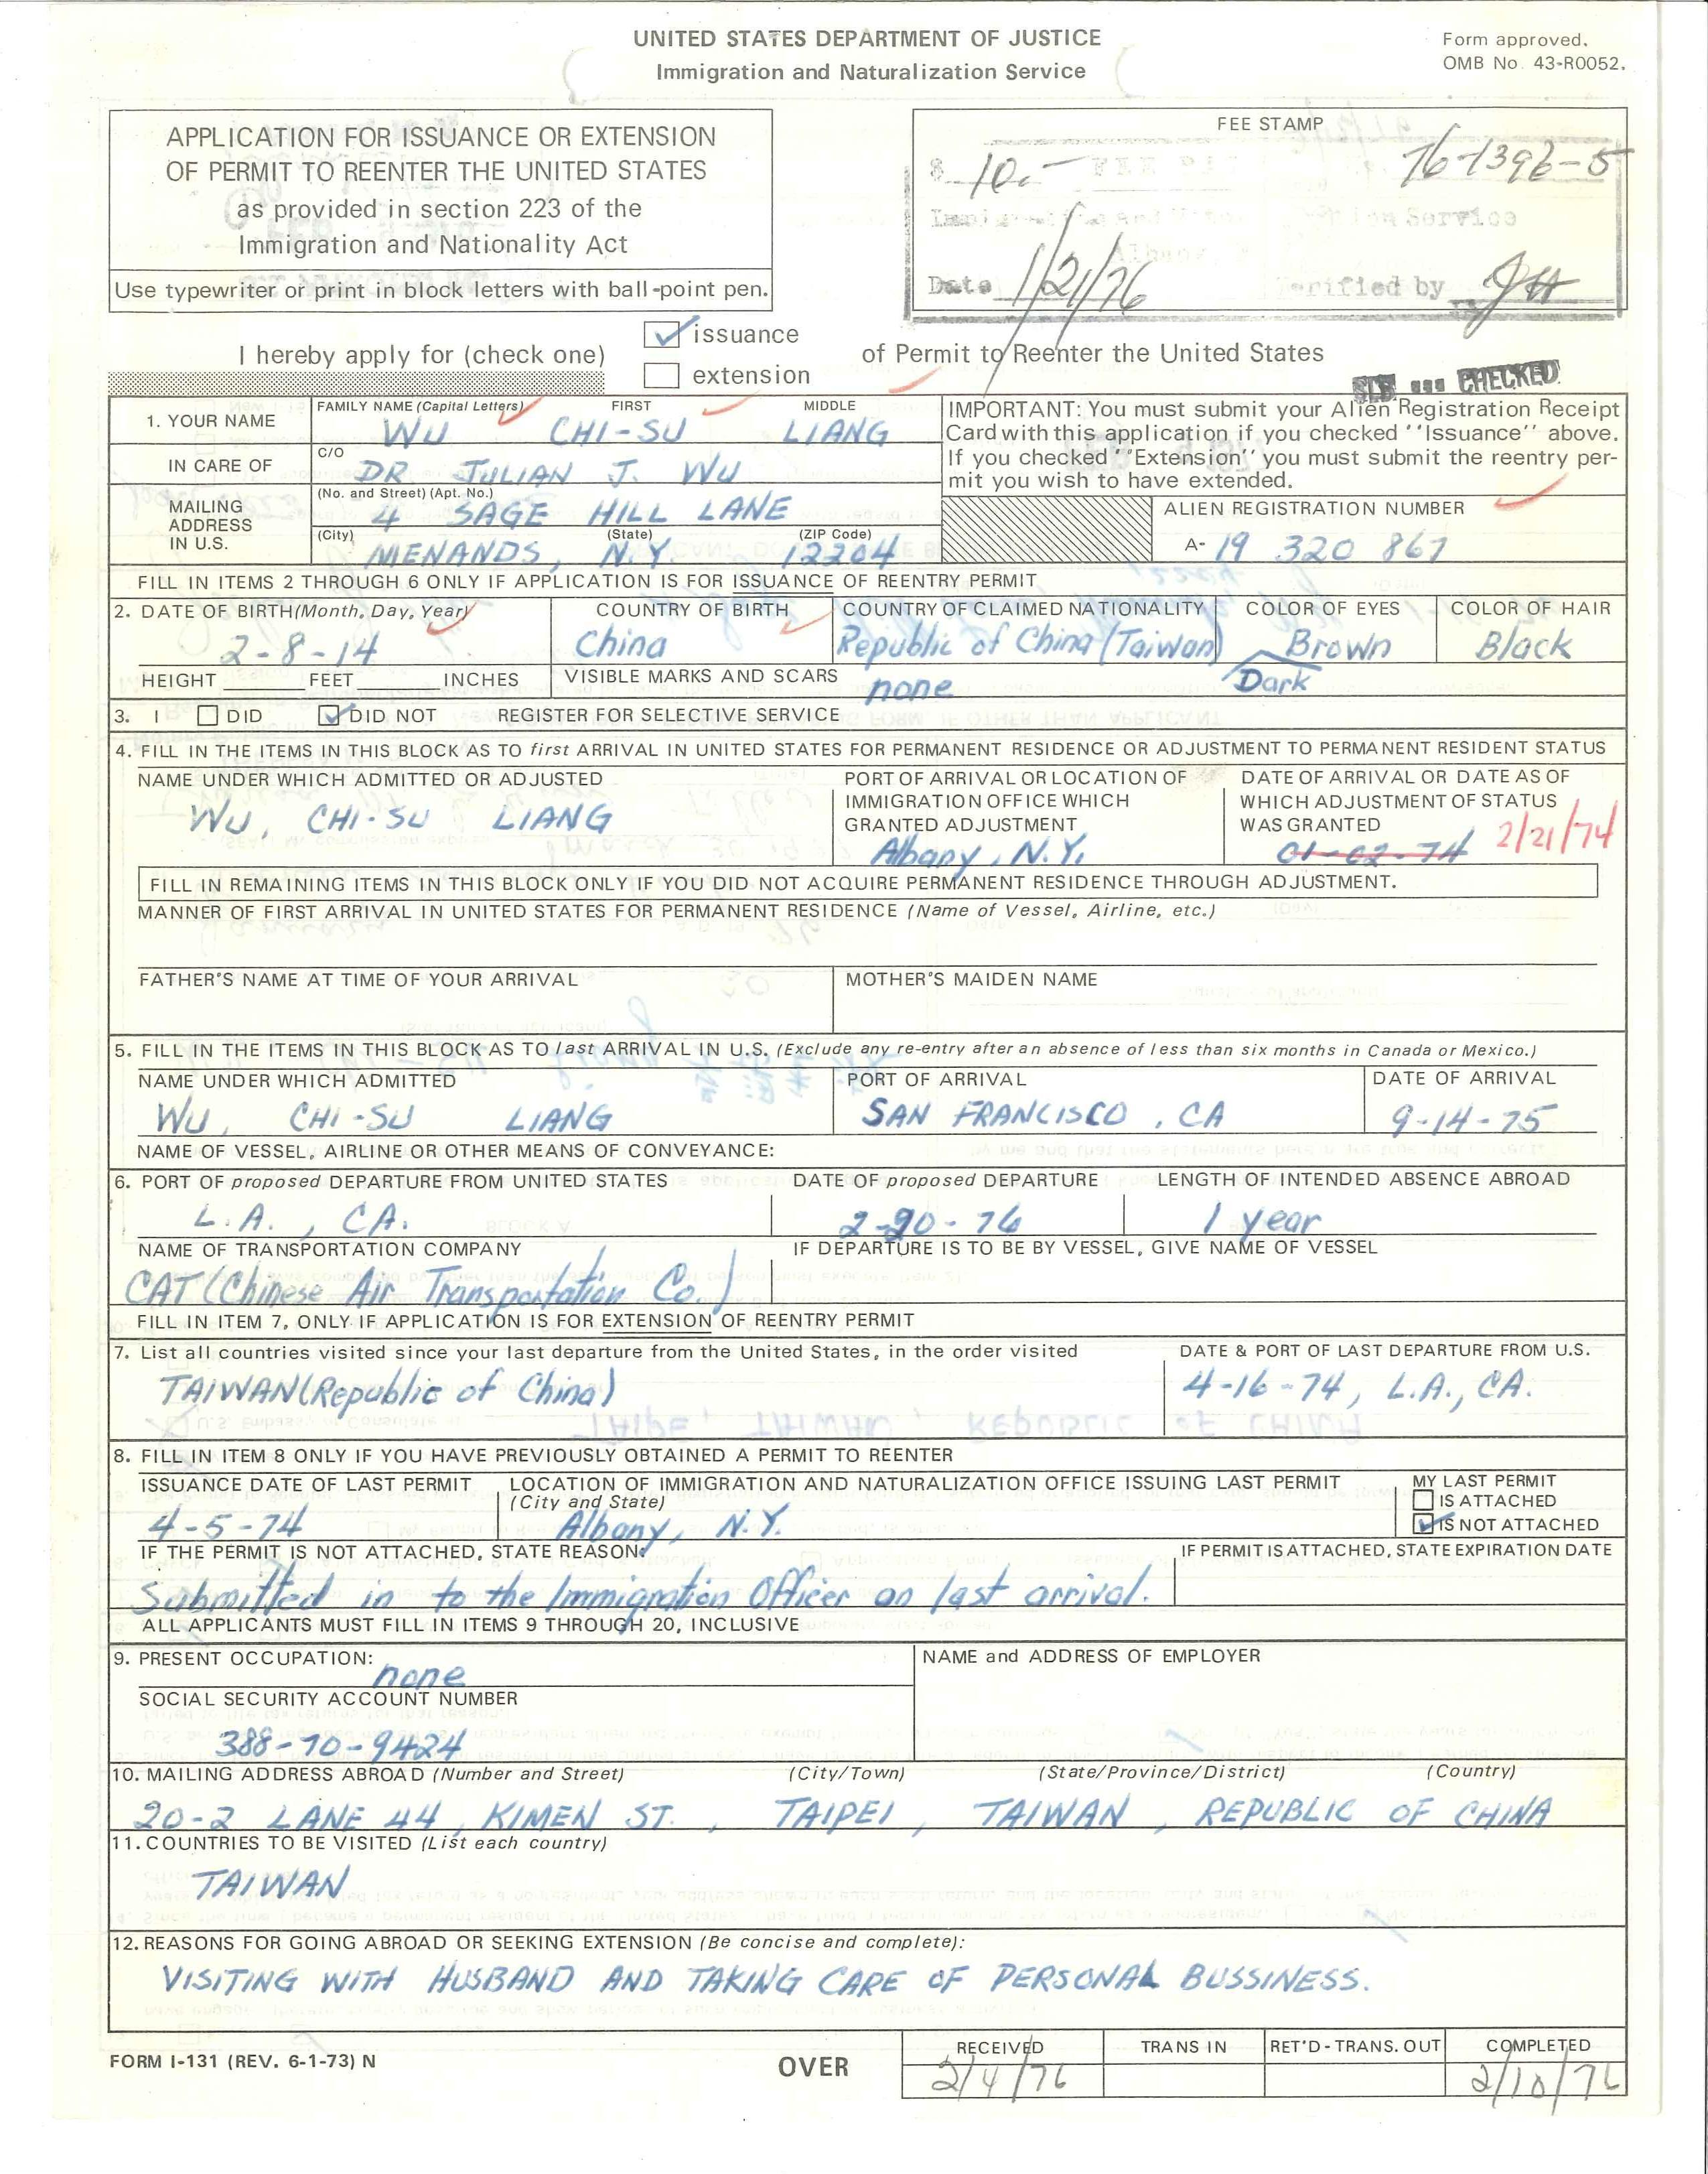 UNITED STATES DEPARTMENT OF JUSTICE
Immigration and Naturalization Service
Form approved.
OMB No. 43-R0052.
APPLICATION FOR ISSUANCE OR EXTENSION
OF PERMIT TO REENTER THE UNITED STATES
as provided in section 223 of the
Immigration and Nationality Act
Use typewriter or print in block letters with ball-point pen.
FEE STAMP
$ 10.- 76-1396-5
Service
Albany,
Date 1/21/76 verified by
I hereby apply for (check one)
issuance
extension
of Permit to Reenter the United States
CHECKED
1. YOUR NAME
FAMILY NAME (Capital Letters) FIRST MIDDLE
WU CHI-SU LIANG
IN CARE OF
C/O
DR JULIAN J. WU
MAILING
ADDRESS
IN U.S.
(No. and Street) (Apt. No.)
4 SAGE HILL LANE
(City) (State) (ZIP Code)
MENANDS, N.Y. 12204
IMPORTANT: You must submit your Alien Registration Receipt
Card with this application if you checked ''Issuance'' above.
If you checked ''Extension'' you must submit the reentry per-
mit you wish to have extended.
ALIEN REGISTRATION NUMBER
A- 19 320 867
FILL IN ITEMS 2 THROUGH 6 ONLY IF APPLICATION IS FOR ISSUANCE OF REENTRY PERMIT
2. DATE OF BIRTH (Month, Day, Year) COUNTRY OF BIRTH COUNTRY OF CLAIMED NATIONALITY COLOR OF EYES COLOR OF HAIR
2-8-14 China Republic of China (Taiwan) Brown Black
Dark
HEIGHT FEET INCHES VISIBLE MARKS AND SCARS none
3. I DID DID NOT REGISTER FOR SELECTIVE SERVICE
4. FILL IN THE ITEMS IN THIS BLOCK AS TO first ARRIVAL IN UNITED STATES FOR PERMANENT RESIDENCE OR ADJUSTMENT TO PERMANENT RESIDENT STATUS
NAME UNDER WHICH ADMITTED OR ADJUSTED
WU, CHI-SU LIANG
PORT OF ARRIVAL OR LOCATION OF
IMMIGRATION OFFICE WHICH
GRANTED ADJUSTMENT
Albany, N.Y.
DATE OF ARRIVAL OR DATE AS OF
WHICH ADJUSTMENT OF STATUS
WAS GRANTED
01-02-74 2/21/74
FILL IN REMAINING ITEMS IN THIS BLOCK ONLY IF YOU DID NOT ACQUIRE PERMANENT RESIDENCE THROUGH ADJUSTMENT.
MANNER OF FIRST ARRIVAL IN UNITED STATES FOR PERMANENT RESIDENCE (Name of Vessel, Airline, etc.)
FATHER'S NAME AT TIME OF YOUR ARRIVAL MOTHER'S MAIDEN NAME
5. FILL IN THE ITEMS IN THIS BLOCK AS TO last ARRIVAL IN U.S. (Exclude any re-entry after an absence of less than six months in Canada or Mexico.)
NAME UNDER WHICH ADMITTED PORT OF ARRIVAL DATE OF ARRIVAL
WU, CHI-SU LIANG SAN FRANCISCO, CA 9-14-75
NAME OF VESSEL, AIRLINE OR OTHER MEANS OF CONVEYANCE:
6. PORT OF proposed DEPARTURE FROM UNITED STATES DATE OF proposed DEPARTURE LENGTH OF INTENDED ABSENCE ABROAD
L.A., CA. 2-20-76 1 year
NAME OF TRANSPORTATION COMPANY IF DEPARTURE IS TO BE BY VESSEL, GIVE NAME OF VESSEL
CAT (Chinese Air Transportation Co.)
FILL IN ITEM 7, ONLY IF APPLICATION IS FOR EXTENSION OF REENTRY PERMIT
7. List all countries visited since your last departure from the United States, in the order visited DATE & PORT OF LAST DEPARTURE FROM U.S.
TAIWAN (Republic of China) 4-16-74, L.A., CA.
8. FILL IN ITEM 8 ONLY IF YOU HAVE PREVIOUSLY OBTAINED A PERMIT TO REENTER
ISSUANCE DATE OF LAST PERMIT LOCATION OF IMMIGRATION AND NATURALIZATION OFFICE ISSUING LAST PERMIT MY LAST PERMIT
(City and State) IS ATTACHED
4-5-74 Albany, N.Y. IS NOT ATTACHED
IF THE PERMIT IS NOT ATTACHED, STATE REASON: IF PERMIT IS ATTACHED, STATE EXPIRATION DATE
Submitted in to the Immigration Officer on last arrival.
ALL APPLICANTS MUST FILL IN ITEMS 9 THROUGH 20, INCLUSIVE
9. PRESENT OCCUPATION: none NAME and ADDRESS OF EMPLOYER
SOCIAL SECURITY ACCOUNT NUMBER
388-70-9424
10. MAILING ADDRESS ABROAD (Number and Street) (City/Town) (State/Province/District) (Country)
20-2 LANE 44, KIMEN ST., TAIPEI, TAIWAN, REPUBLIC OF CHINA
11. COUNTRIES TO BE VISITED (List each country)
TAIWAN
12. REASONS FOR GOING ABROAD OR SEEKING EXTENSION (Be concise and complete):
VISITING WITH HUSBAND AND TAKING CARE OF PERSONAL BUSSINESS.
FORM I-131 (REV. 6-1-73) N
OVER
RECEIVED TRANS IN RET'D-TRANS. OUT COMPLETED
2/4/76 2/10/76